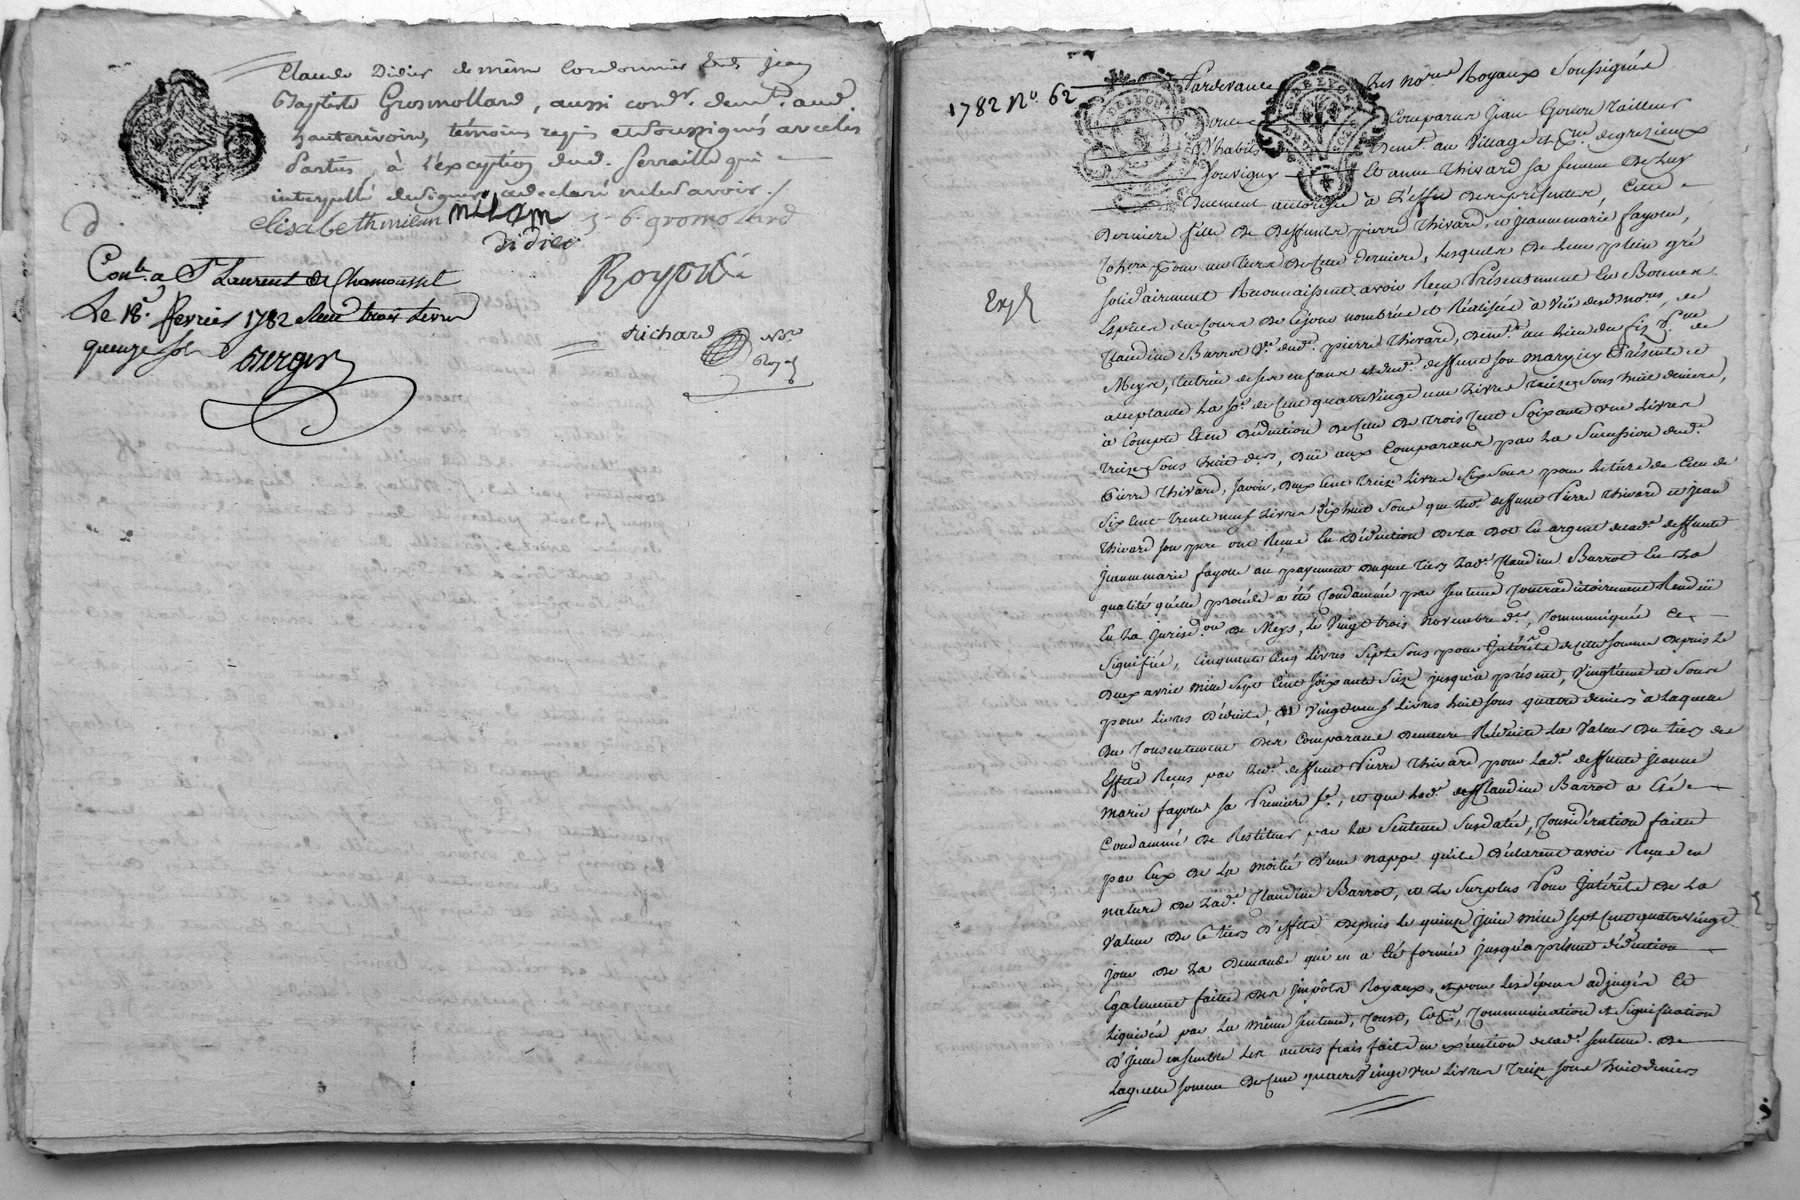 Claude Didier de même Cordonnier Et Jean
Baptiste Grosmolland, aussi cordr. demt. aud.
hauterivoire, témoins requis et soussignés avec les
Parties, à l'exception dud. Serraille qui
interpellé de signer a declaré ne le savoir. /
Elisabeth milan milan J-B gromolard
didier
D.
Conle. a St Laurent de Chamousset
Le 18e. fevrier 1782 Reçu trois Livres
quinze sols
Richard Nre.
Royal
1782 No. 62
Pardevant Les nores Royaux Soussignés
furent Comparus Jean Tailleur
D'habits Demt. au Village et de grezieux
Et anne thivard sa femme De Luy
Duement autorisée à L'effet des présentes, Cette
Derniere fille De Deffunts pierre thivard, et jeanne marie fayolle,
pour un tiers De Cette derniere, Lesquels De Leur plein gré
solidairement Reconnaissent avoir Reçu Présentement En Bonnes
Espèces du Cours De ce jour nombrée et Réalisée à Vüe desd. nores, de
Claudine Barrot Ve. dud. pierre thivard, demte. au Lieu du
Meys, tutrice de ses enfans et dud. deffunt son mary icy Présente et
acceptante La se. de Cent quatre vingt une Livres treize Sous huit deniers,
à Compte Et en déduction De Celle De trois Cent Soixante une Livres
treize Sous huit ders, Düe aux Comparans par La Succession dud.
Pierre thivard, Savoir, Deux Cent treize Livres six Sous pour le tiers de Celle de
Six Cent trente neuf Livres Dixhuit Sous que Led. deffunt Pierre thivard et jean
thivard son pere ont Reçue En Déduction De La Dot En argent de lad. deffunte
jeanne marie fayolle au payement duquel tiers Lad. Claudine Barrot En La
qualité qu'elle procéde a été Condamnée par Sentence Contradictoirement Rendüe
En La jurisdon. De Meys, Le Vingt trois novembre der., Communiquée et
Signifiée, Cinquante Cinq Livres Sept Sous pour Intérêts de Cette Somme depuis Le
Deux avril mille Sept Cent soixante Seize jusqu'à présent, Vingtieme et Sous
pour Livres Déduits, et Vingt neuf Livres huit sous quatre deniers à Laquelle
Du Consentement Des Comparans Demeure Réduite La Valeur Du tiers des
Effets Reçus par Led. deffunt Pierre thivard pour Lad. deffunte jeanne
Marie fayolle sa Premiere fe., et que Lad. Claudine Barrot a Eté
Condamnée De Restituer par La Sentence Susdatée, Considération faite
par Eux De La moitié D'une nappe qu'ils Déclarent avoir Reçue en
nature De Lad. Claudine Barrot, et Le Surplus Pour Intérêts De La
Valeur De Ce tiers D'effets Depuis Le quinze juin mille Sept Cent quatre vingt
jour De La Demande qui en a Eté formée jusqu'à présent déduction
Egalement faite Des impôts Royaux, et pour Les dépens adjugés Et
Liquidés par La même Sentence, Cout, Communication et Signification
D'jcelle ensemble Les autres frais faits en exécution de lad. Sentence. De
Laquelle Somme De Cent quatre Vingt une Livres treize Sous huit deniers